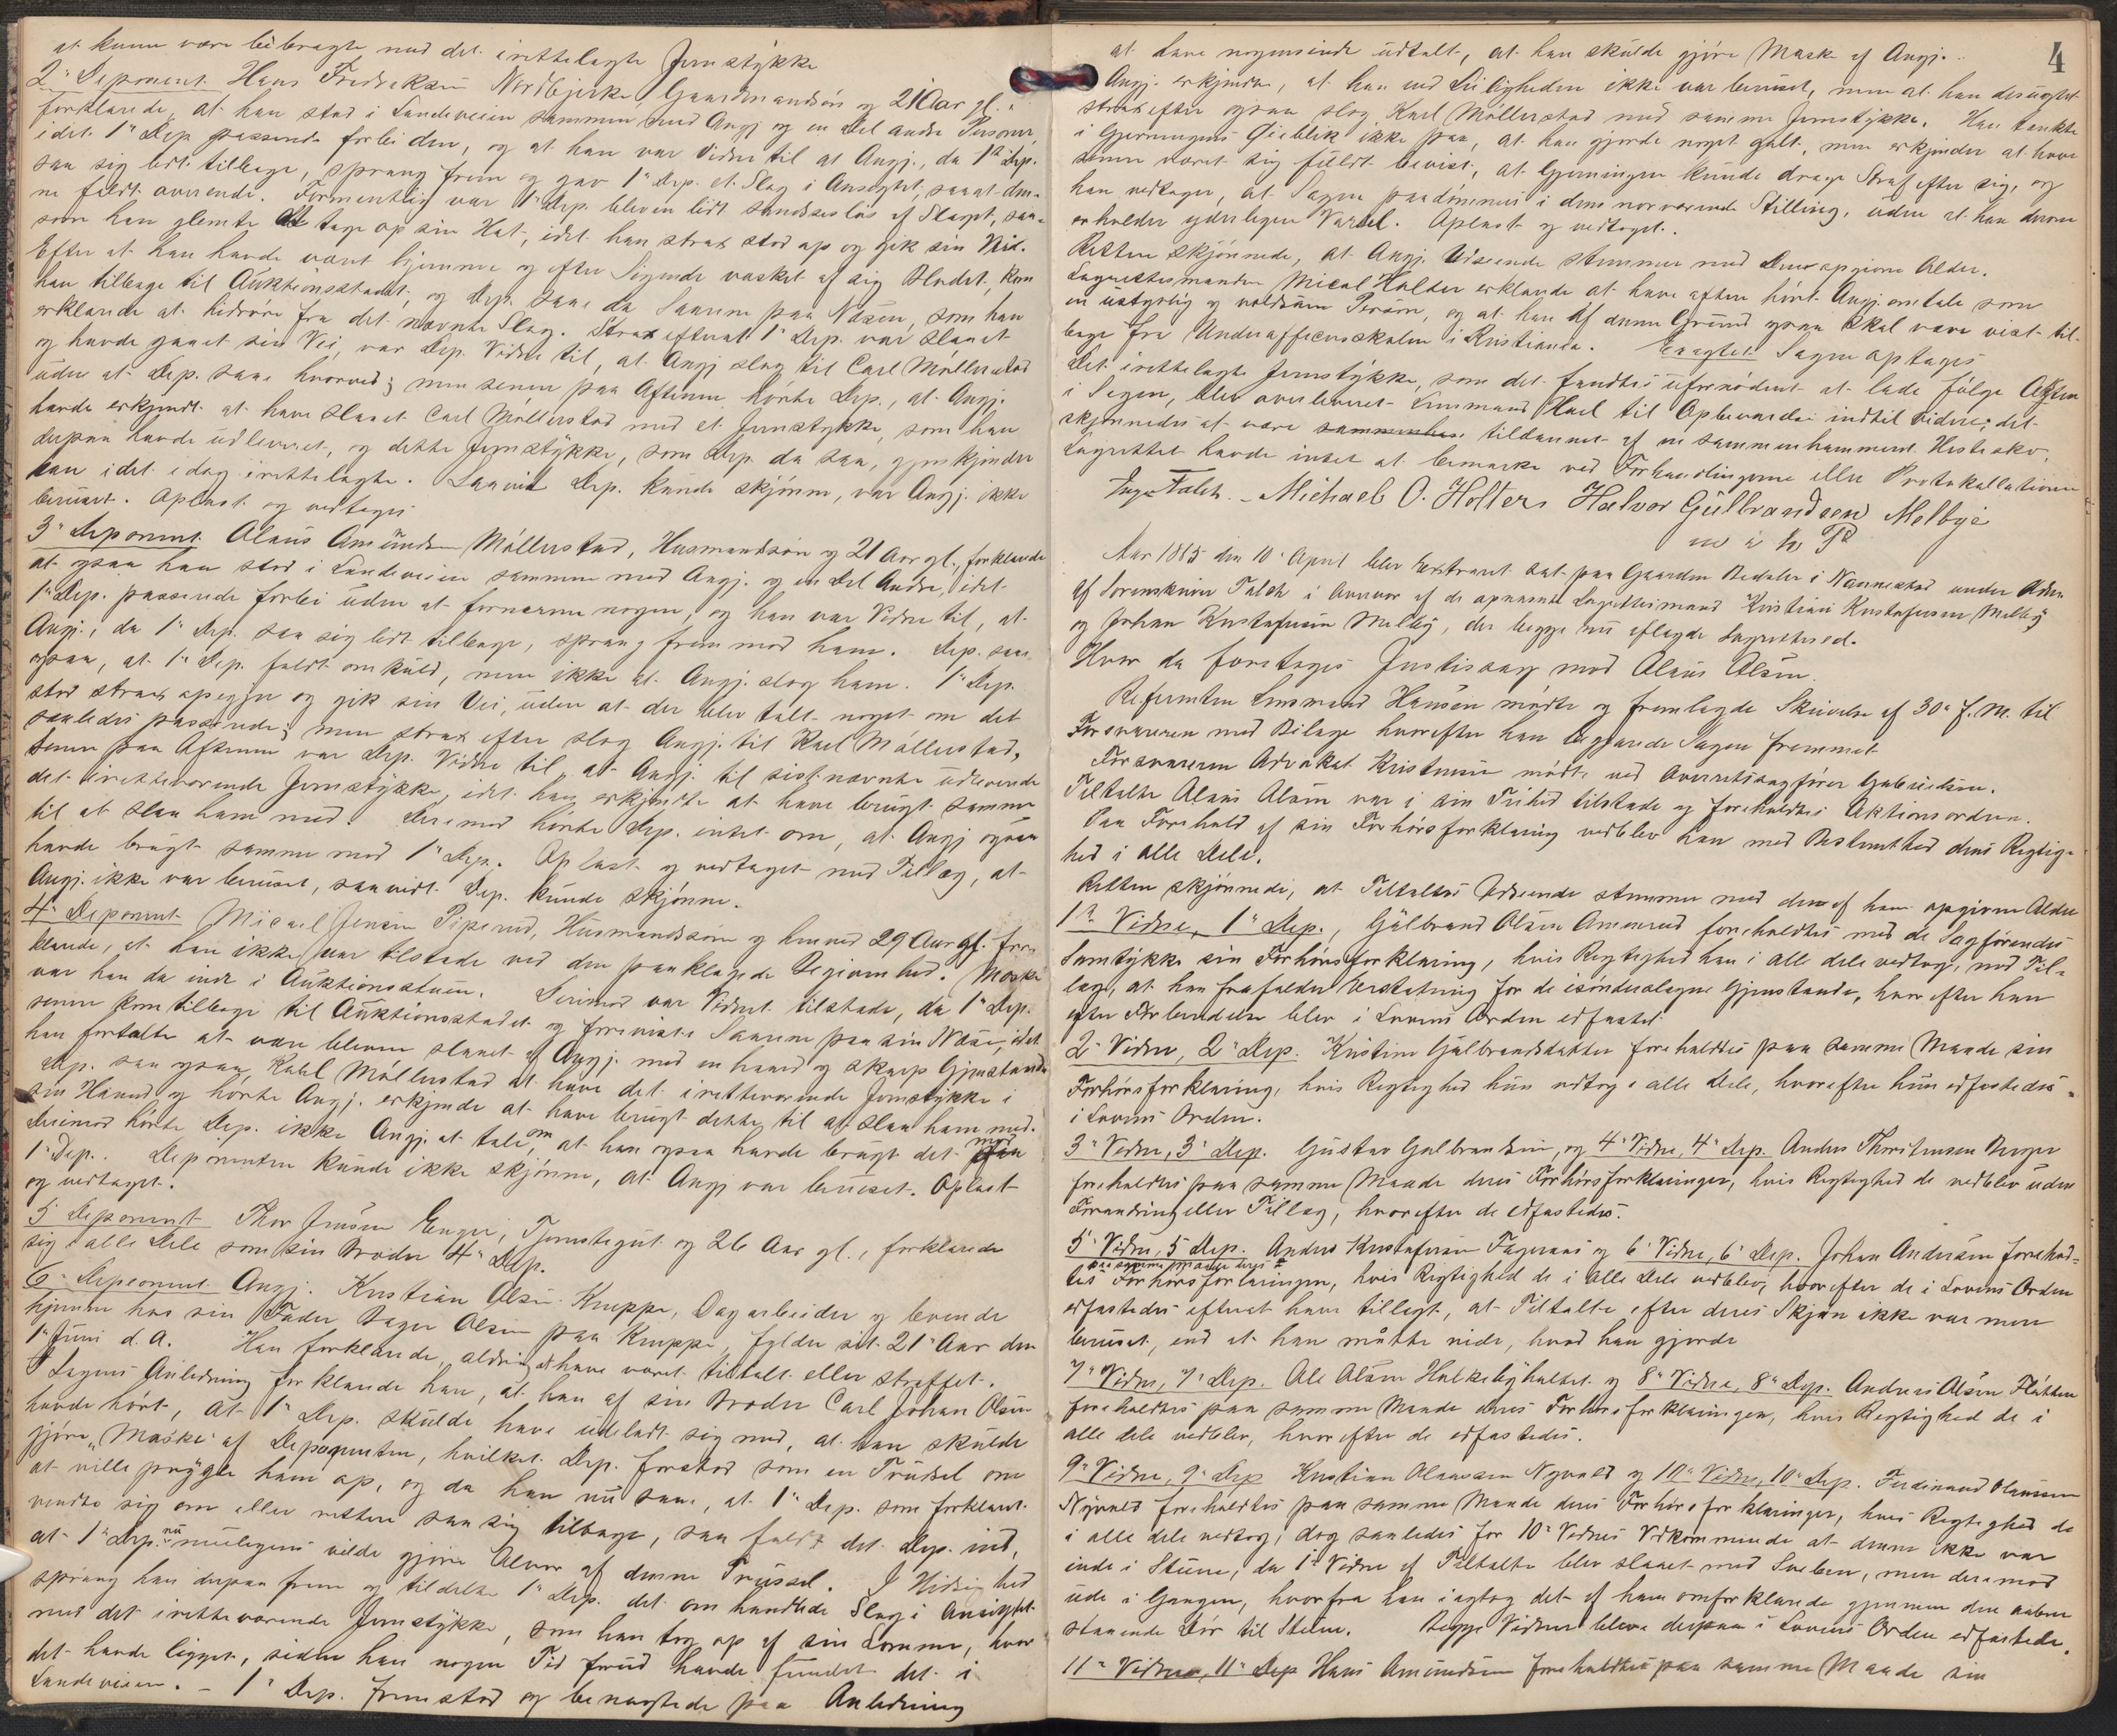 at kunne være bibragte med det irettelagte Jernstykke
2' Deponent Hans Fredriksen Nordbjerke, Gaardmandsøn og 21 Aar gl.
forklarede, at han stod i Landeveien sammen med Angj. og en Del andre Personer,
idet 1' Dep. passerede forbi dem, og at han var Vidne til at Angj., da 1' Dep.
saa sig lidt tilbage, sprang frem og gav 1' Dep. et Slag i Ansigtet, saa at den-
ne faldt overende. Formentlig var 1' Dep. bleven lidt sandsesløs af Slaget, saa-
som han glemte at tage op sin Hat, idet han strax stod op og gik sin Vei.
Efter at han havde været hjemme og efter Sigende vasket af sig Blodet, kom
han tilbage til Auktionsstedet, og Dep. saa da Saarene paa Næsen, som han
erklærede at hidrøre fra det nævnte Slag. Strax efterat 1' Dep. var slaaet
og havde gaaet sin Vei, var Dep. Vidne til, at Angj. slog til Carl Møllerstad
uden at Dep. saa hvorved; men senere paa Aftenen hørte Dep., at Angj.
havde erkjendt at have slaaet Carl Møllerstad med et Jernstykke, som han
derpaa havde udleveret, og dette Jernstykke, som Dep. da saa, gjenkjender
han i det idag irettelagte. Saavidt Dep. kunde skjønne, var Angj. ikke
beruset. Oplæst og vedtaget
3' Deponent Olaus Amundsen Møllerstad, Husmandsøn og 21 Aar gl., forklarede
at ogsaa han stod i Landeveien sammen med Angj. og en Del Andre, idet
1' Dep. passerede forbi uden at fornærme nogen, og han var Vidne til, at
Angj., da 1' Dep. saa sig lidt tilbage, sprang frem mod ham. Dep. saa
ogsaa, at 1' Dep. faldt omkuld, men ikke at Angj. slog ham. 1' Dep.
stod strax op igjen og gik sin Vei, uden at der blev talt noget om det
saaledes passerede; men strax efter slog Angj. til Karl Møllerstad,
Senere paa Aftenen var Dep. Vidne til, at Angj. til sistnævnte udleverede
det iretteværende Jernstykke, idet han erkjendte at have brugt samme
til at slaa ham med. Derimod hørte Dep. intet om, at Angj. ogsaa
havde brugt samme mod 1' Dep. Oplæst og vedtaget med Tillæg, at
Angj. ikke var beruset, saavidt Dep. kunde skjønne.
4' Deponent Micael Jensen Piperud, Husmandssøn og henved 29 Aar gl. for-
klarede, at han ikke var tilstede ved den paaklagede Begivenhed. Maaske
var han da inde i Auktionsstuen. Derimod var Vidnet tilstede, da 1' Dep.
senere kom tilbage til Auktionsstedet og foreviste Saarene paa sin Næse, idet
han fortalte at være bleven slaaet af Angj. med en haard og skarp Gjenstand
Dep. saa ogsaa Karl Møllerstad at have det iretteværende Jernstykke i
sin Haand og hørte Angj. erkjende at have brugt dette til at slaa ham med.
Derimod hørte Dep. ikke Angj. at tale om, at han ogsaa havde brugt det mod
1' Dep. Deponenten kunde ikke skjønne, at Angj. var beruset. Oplæst
og vedtaget.
5' Deponent Thor Jensen Enger, Tjenstegut og 26 Aar gl., forklarede
sig i alle Dele som sin Broder 4' Dep.
6' Deponent Angj. Kristian Olsen Kruppe, Dagarbeider og boende
hjemme hos sin Fader Olsen paa Kruppe, fylder sit 21' Aar den
1' Juni d. A. Han forklarede aldrig at have været tiltalt eller straffet.
I Sagens Anledning forklarede han, at han af sin Broder Carl Johan Olsen
havde hørt, at 1' Dep. skulde have udeladt sig med, at han skulde
gjøre „Maske" af Deponenten, hvilket Dep. forstod som en Trudsel om
at ville prygle ham op, og da han nu saa, at 1' Dep. som forklaret
vendte sig om eller rettere saa sig tilbage, saa faldt det Dep. ind,
at 1' Dep. nu muligens vilde gjøre Alvor af denne Trusel. I Hidsighed
sprang han derpaa frem og tildelte 1' Dep. det omhandlede Slag i Ansigtet
med det iretteværende Jernstykke, som han tog op af sin Lomme, hvor
det havde ligget, siden han nogen Tid forud havde fundet det i
Landeveien. – 1' Dep. fremstod og benægtede paa Anledning
4
at have nogensinde udtalt, at han skulde gjøre Maske af Angj.
Angj. erkjender, at han ved Leiligheden ikke var beruset, men at han desuagtet
strax efter ogsaa slog Karl Møllerstad med samme Jernstykke. Han tænkte
i Gjerningens Øieblik ikke paa, at han gjorde noget galt, men erkjender at have
senere været sig fuldt bevist, at Gjerningen kunde drage Straf efter sig, og
han vedtager, at Sagen paadømmes i dens nærværende Stilling, uden at han dertil
erholder yderligere Varsel. Oplæst og vedtaget.
Retten skjønnede, at Angj. Udseende stemmer med den opgivne Alder.
Lagrettesmanden Micael Holter erklærede at have oftere hørt Angj. omtale som
en ustyrlig og voldsom Person, og at han af denne Grund ogsaa skal være vist til-
bage fra Underofficersskolen i Kristiania. Eragtet Sagen optages
Det irettelagte Jernstykke, som det fandtes ufornødent at lade følge Akten
i Sagen, blev overleveret Lensmand Hael til Opbevarelse indtil videre; det
skjønnedes at være tildannet af en sammenhamret Hestesko.
Lagrettet havde intet at bemærke ved Forhandlingerne eller Protokollationen
Falch. Michael O. Holter Halvor Gulbrandsen Melbye
m i h P
Aar 1885 den 10' April blev Extraret sat paa Gaarden Bedaler i Nannestad under
af Sorenskriver Falch i Overvær af de opnævnte Lagrettesmænd Kristian Kristofersen Melby
og Johan Kristofersen Melby, der begge nu aflagde Lagretteed.
Hvor da foretoges Justissag mod Olaus Olsen.
Referenten Lensmand Hansen mødte og fremlagde Skrivelse af 30' f. M. til
Forsvareren med Bilage hvorefter han begjærede Sagen fremmet
Forsvareren Advokat Kristensen mødte ved Overretssagfører Gabrielsen.
Tiltalte Olaus Olsen var i sin Frihed tilstede og foreholdtes Aktionsordren.
Paa Forehold af sin Forhørsforklaring vedblev han med Bestemthed dens Rigtig-
hed i alle Dele.
Retten skjønnede, at Tiltaltes Udseende stemmer med den af ham opgivne Alder
1' Vidne, 1' Dep., Gulbrand Olsen Ammerud foreholdtes med de Sagførendes
Samtykke sin Forhørsforklaring, hvis Rigtighed han i alle dele vedtog, med Til-
læg, at han frafalder Erstatning for de isønderslagne Gjenstande, hvorefter han
efter Forberedelse blev i Lovens Orden edfæstet
2' Vidne, 2' Dep. Kristine Gulbrandsdatter foreholdtes paa samme Maade sin
Forhørsforklaring, hvis Rigtighed hun vedtog i alle Dele, hvorefter hun edfæstedes
i Lovens Orden.
3' Vidne, 3' Dep. Gustav Gulbrandsen, og 4' Vidne, 4' Dep. Anders Thorstensen Berger
foreholdtes paa samme Maade deres Forhørsforklaringer, hvis Rigtighed de vedblev uden
Forandring eller Tillæg, hvorefter de edfæstedes.
5' Vidne, 5' Dep. Anders Kristofersen Fageraas og 6' Vidne, 6' Dep. Johan Andersen forehold-
paa samme Maade deres
tes Forhørsforlaringer, hvis Rigtighed de i alle Dele vedblev, hvorefter de i Lovens Orden
edfæstedes efterat have tillagt, at Tiltalte efter deres Skjøn ikke var mere
beruset, end at han måtte vide, hvad han gjorde
7' Vidne, 7' Dep. Ole Olsen Holkebyhaltet og 8' Vidne, 8' Dep. Andreas Olsen Flåtten
foreholdtes paa samme Maade deres Forhørsforklaringer, hvis Rigtighed de i
alle dele vedblev, hvorefter de edfæstedes.
9' Vidne, 9' Dep Kristian Olaussen Nyvold og 10' Vidne, 10' Dep. Ferdinand Olaussen
Nyvold foreholdtes paa samme Maade deres Forhørsforklaringer, hvis Rigtighed de
i alle dele vedtog, dog saaledes for 10' Vidnes Vedkommende at denne ikke var
inde i Stuen, da 1' Vidne af Tiltalte blev slaaet med Sveiven, men derimod
ude i Gangen, hvorfra han iagtog det af ham omforklarede gjennem den aabne
staaende Dør til Stuen. Begge Vidner bleve derpaa i Lovens Orden edfæstede.
11' Vidne, 11' Dep Hans Amundsen foreholdtes paa samme Maade sin